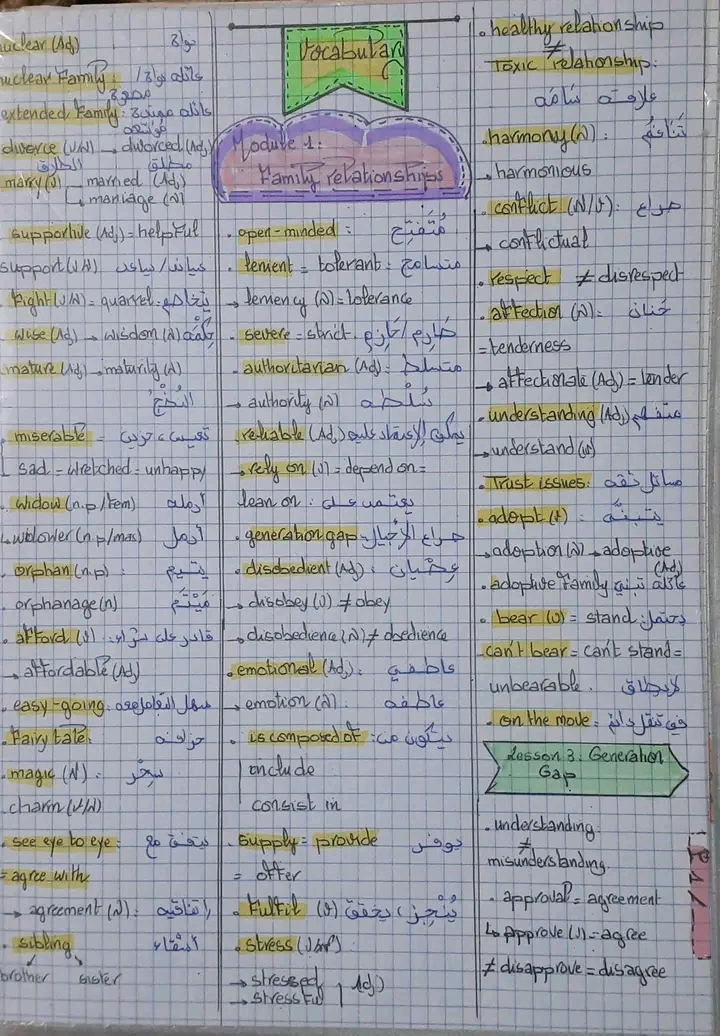 nuclear (Adj) نواة
nuclear Family : عائلة نواة /
مصغرة
extended Family : عائلة ممتدة
divorce (V/N) → divorced (Adj)
الطلاق مطلق
marry (v) → married (Adj)
→ marriage (N)
supportive (Adj) = helpful
support (V/N)
. Fight (V/N) = quarrel : يتخاصم
. wise (Adj) → wisdom (N) حكمة
mature (Adj) → maturity (N)
النُضْج
. miserable = تعيس، حزين
sad = wretched = unhappy
. widow (n.p/fem) أرملة
→ widower (n.p/mas) أرمل
. orphan (n.p) : يتيم
orphanage (n) مَيْتَم
. afford (V) : قادر على شراء
→ affordable (Adj)
. easy-going : سهل التعامل معه
. Fairy tale : خرافة
. magic (N) : سِحْر
. charm (V/N)
. see eye to eye : يتفق مع
= agree with
→ agreement (N) : اتفاقية
. sibling أشقاء
brother sister
Vocabulary
Module 1 :
Family relationships
. open-minded : مُتَفَتِّح
. lenient = tolerant : متسامح
→ leniency (N) = tolerance
. severe = strict صَارِم / حَازِم
. authoritarian (Adj) : متسلط
→ authority (N) سُلْطة
. reliable (Adj) يمكن الإعتماد عليه
→ rely on (V) = depend on =
lean on : يعتمد على
. generation gap صراع الأجيال
. disobedient (Adj) : عِصْيان
→ disobey (V) ≠ obey
→ disobedience (N) ≠ obedience
. emotional (Adj) : عاطفي
→ emotion (N) : عاطفة
. is composed of : يتكون من
include
consist in
. supply = provide يوفر
= offer
. Fulfil (V) يُنْجِز، يحقق
. stress (V/N)
→ stressed
→ stressful Adj
. healthy relationship
≠
Toxic relationship :
علاقة سَامَّة
. harmony (N) : تَنَاغُم
→ harmonious
. conflict (N/V) : صراع
→ conflictual
. respect ≠ disrespect
. affection (N) : حَنان
= tenderness
→ affectionate (Adj) = tender
. understanding (Adj) متفهم
→ understand (v)
. Trust issues : مسائل ثقة
. adopt (V) : يتبنَّى
→ adoption (N) → adoptive
(Adj)
. adoptive Family عائلة تبني
. bear (V) = stand : يحتمل
can't bear = can't stand =
unbearable . لا يطاق
. on the move : في تنقل دائم
Lesson 3 : Generation
Gap
. understanding
≠
misunderstanding.
. approval = agreement
↳ approve (V) = agree
≠ disapprove = disagree